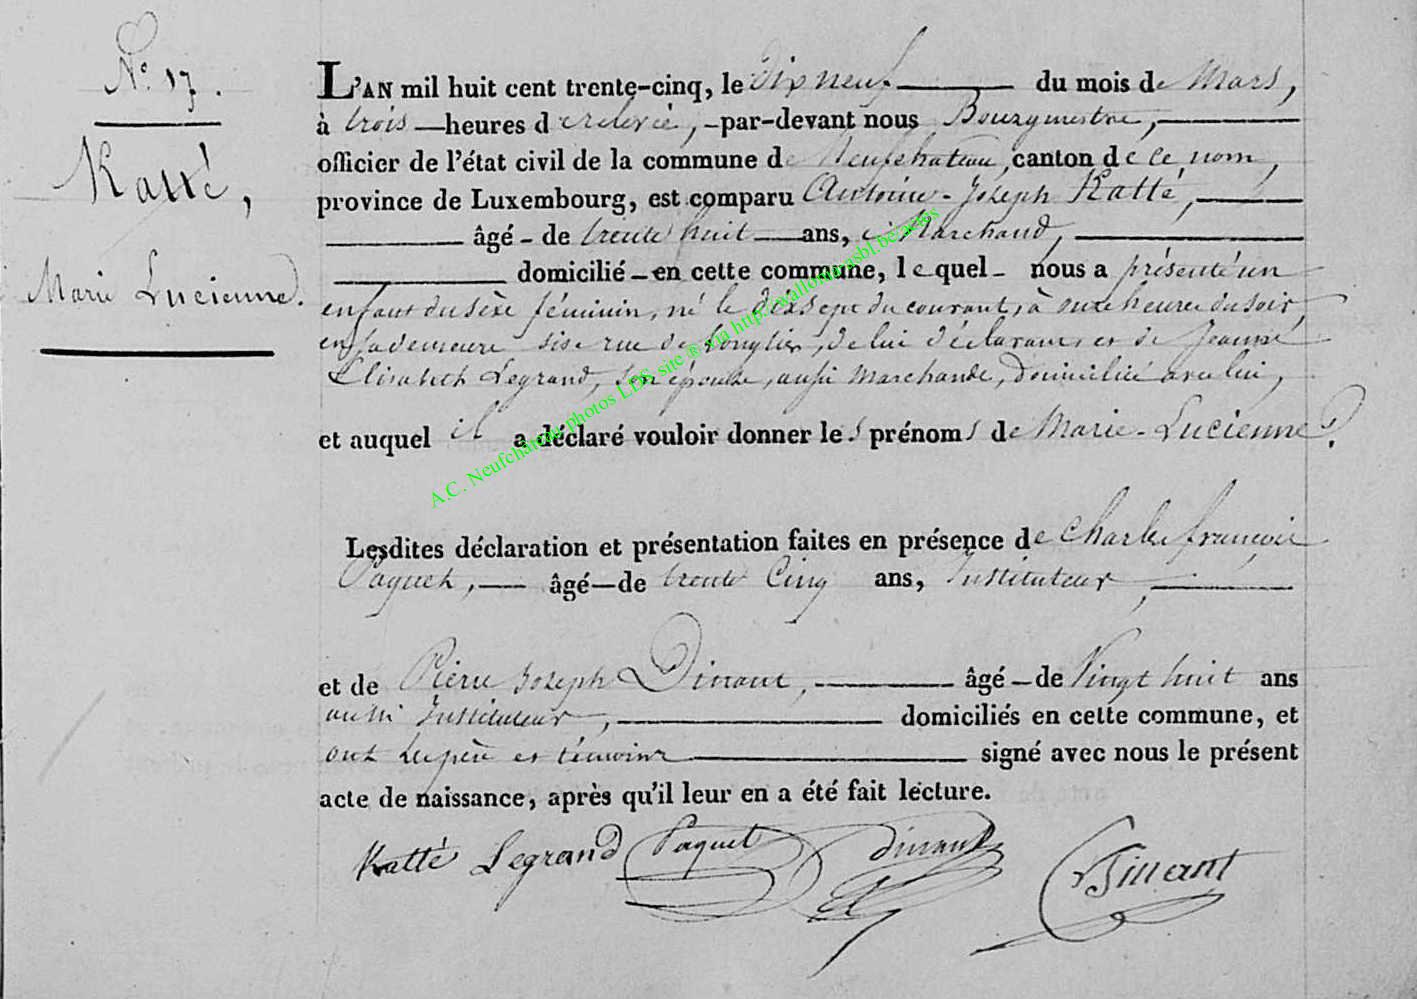 N.° 17.
Katté,
Marie Lucienne.
L'AN mil huit cent trente-cinq, le dix neuf du mois de Mars,
à trois heures de relevée, par-devant nous Bourgmestre,
officier de l'état civil de la commune de Neufchateau, canton de ce nom,
province de Luxembourg, est comparu Antoine-Joseph Katté,
âgé de trente huit ans, Marchand,
domicilié en cette commune, lequel nous a présenté un
enfant du sèxe féminin, né le dixsept du courant, à onze heures du soir,
en sa demeure sise rue de Longlier, de lui déclarant et de Jeanne
Elisabeth Legrand, son épouse, aussi marchande, domiciliée avec lui,
et auquel il a déclaré vouloir donner les prénoms de Marie-Lucienne.
Lesdites déclaration et présentation faites en présence de Charles françois
Paquet, âgé de trente Cinq ans, Instituteur,
et de Pierre Joseph Dinant, âgé de Vingt huit ans
aussi Instituteur, domiciliés en cette commune, et
ont le père et témoins signé avec nous le présent
acte de naissance, après qu'il leur en a été fait lecture.
Katté Legrand Paquet Dinant
A.C. Neufchâteau photos LDS site ® via http://wallonia.asbl.be/actes